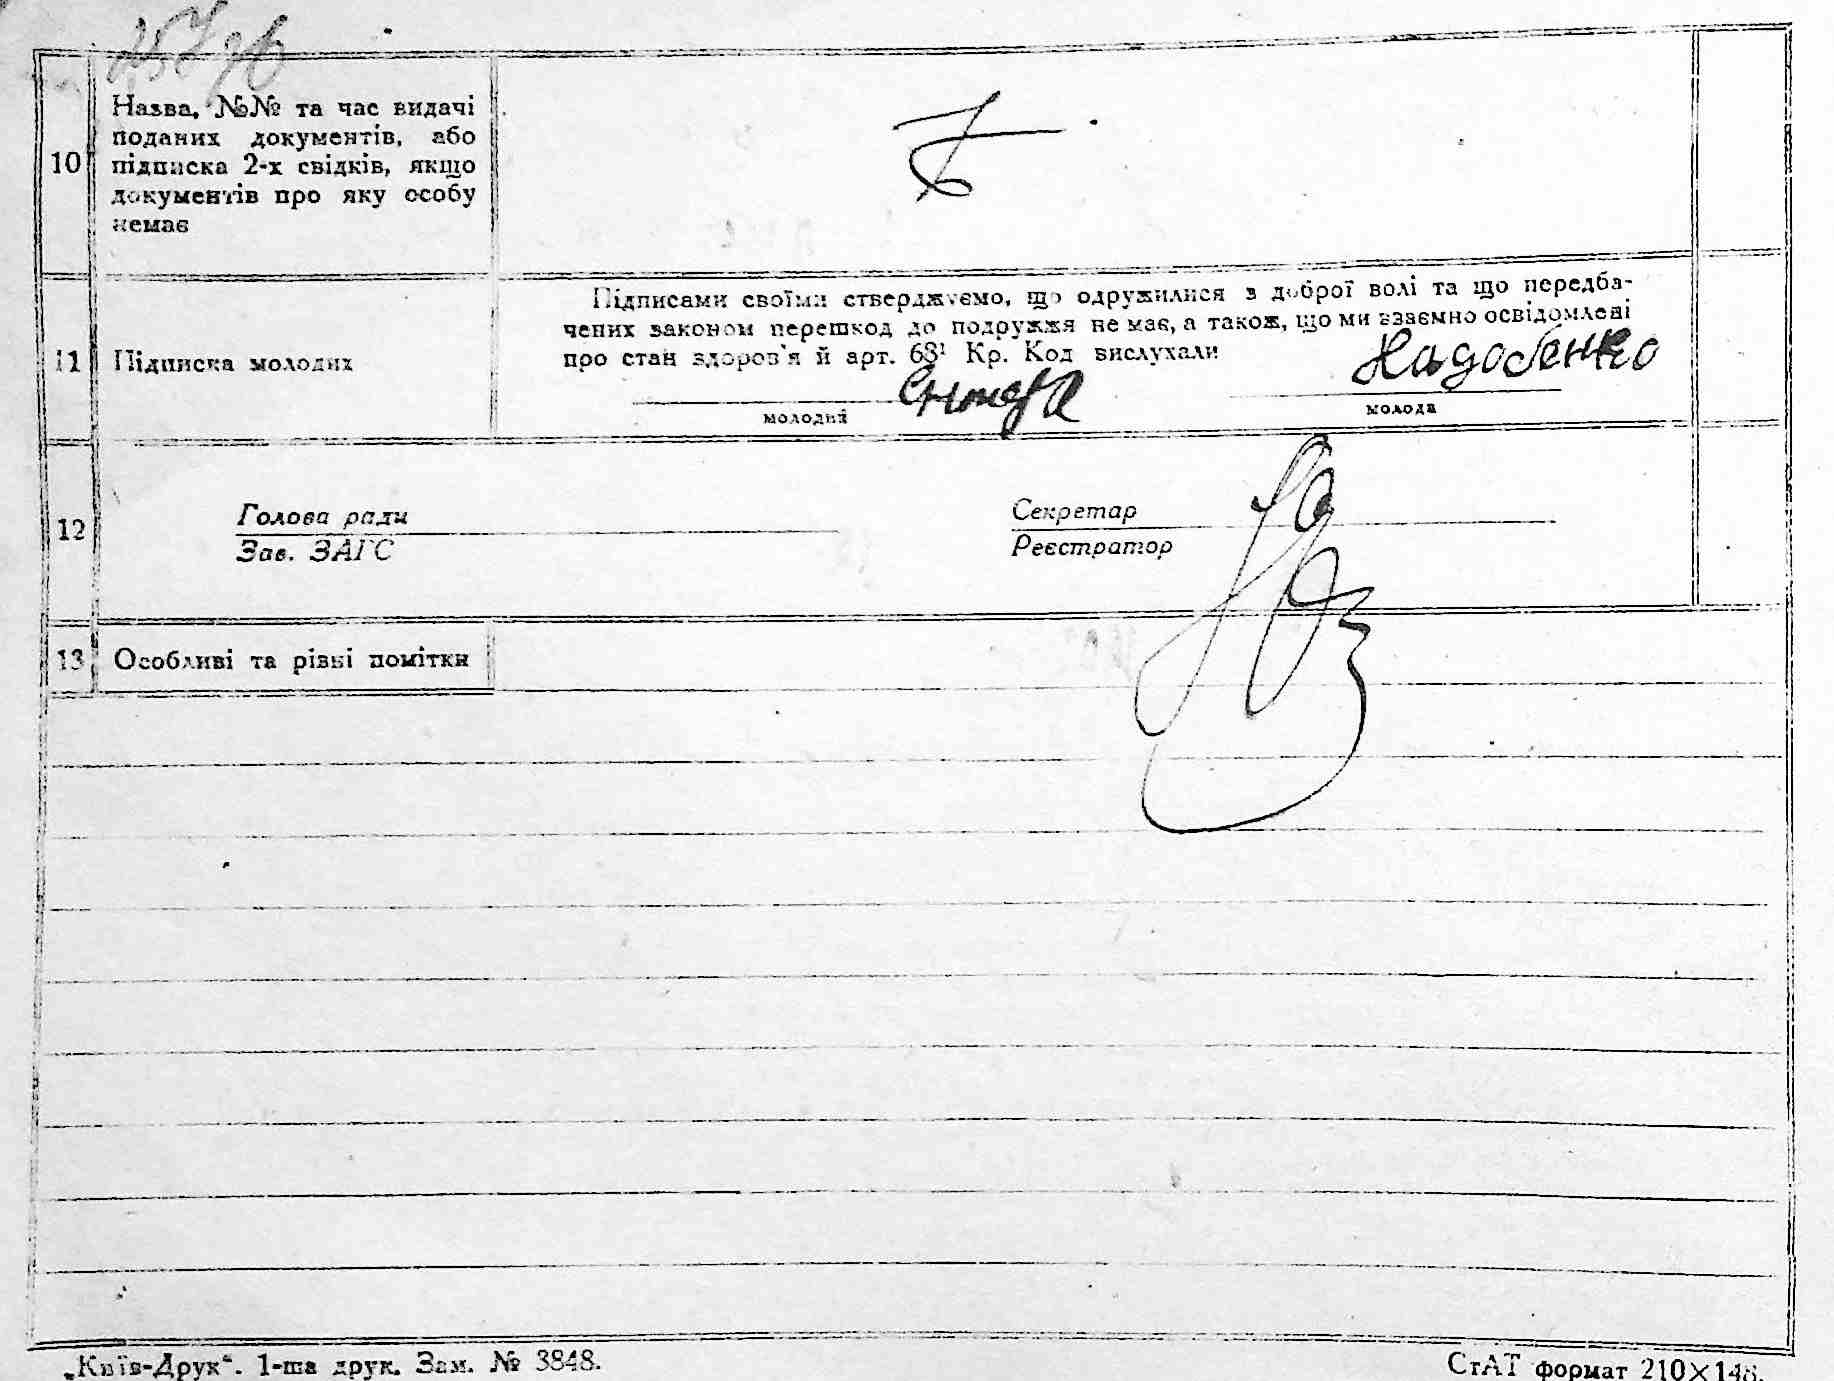 257 зв
10
Назва, №№ та час видачі
поданих документів, або
підписка 2-х свідків, якщо
документів про яку особу
немає
11
Підписка молодих
Підписами своїми стверджуємо, що одружилися з доброї волі та що передба-
чених законом перешкод до подружжя немає, а також, що ми взаємно освідомлені
про стан здоров'я й арт. 68¹ Кр. Код вислухали
Надобенко
молодий
молода
12
Голова ради
Зав. ЗАГС
Секретар
Реєстратор
13
Особливі та рівні помітки
„Київ-Друк“. 1-ша друк. Зам. № 3848.
СтАТ формат 210×148.